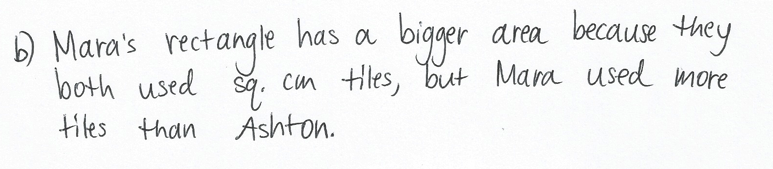 b) Mara's rectangle has a bigger area because they
both used sq. cm tiles, but Mara used more
tiles than Ashton.